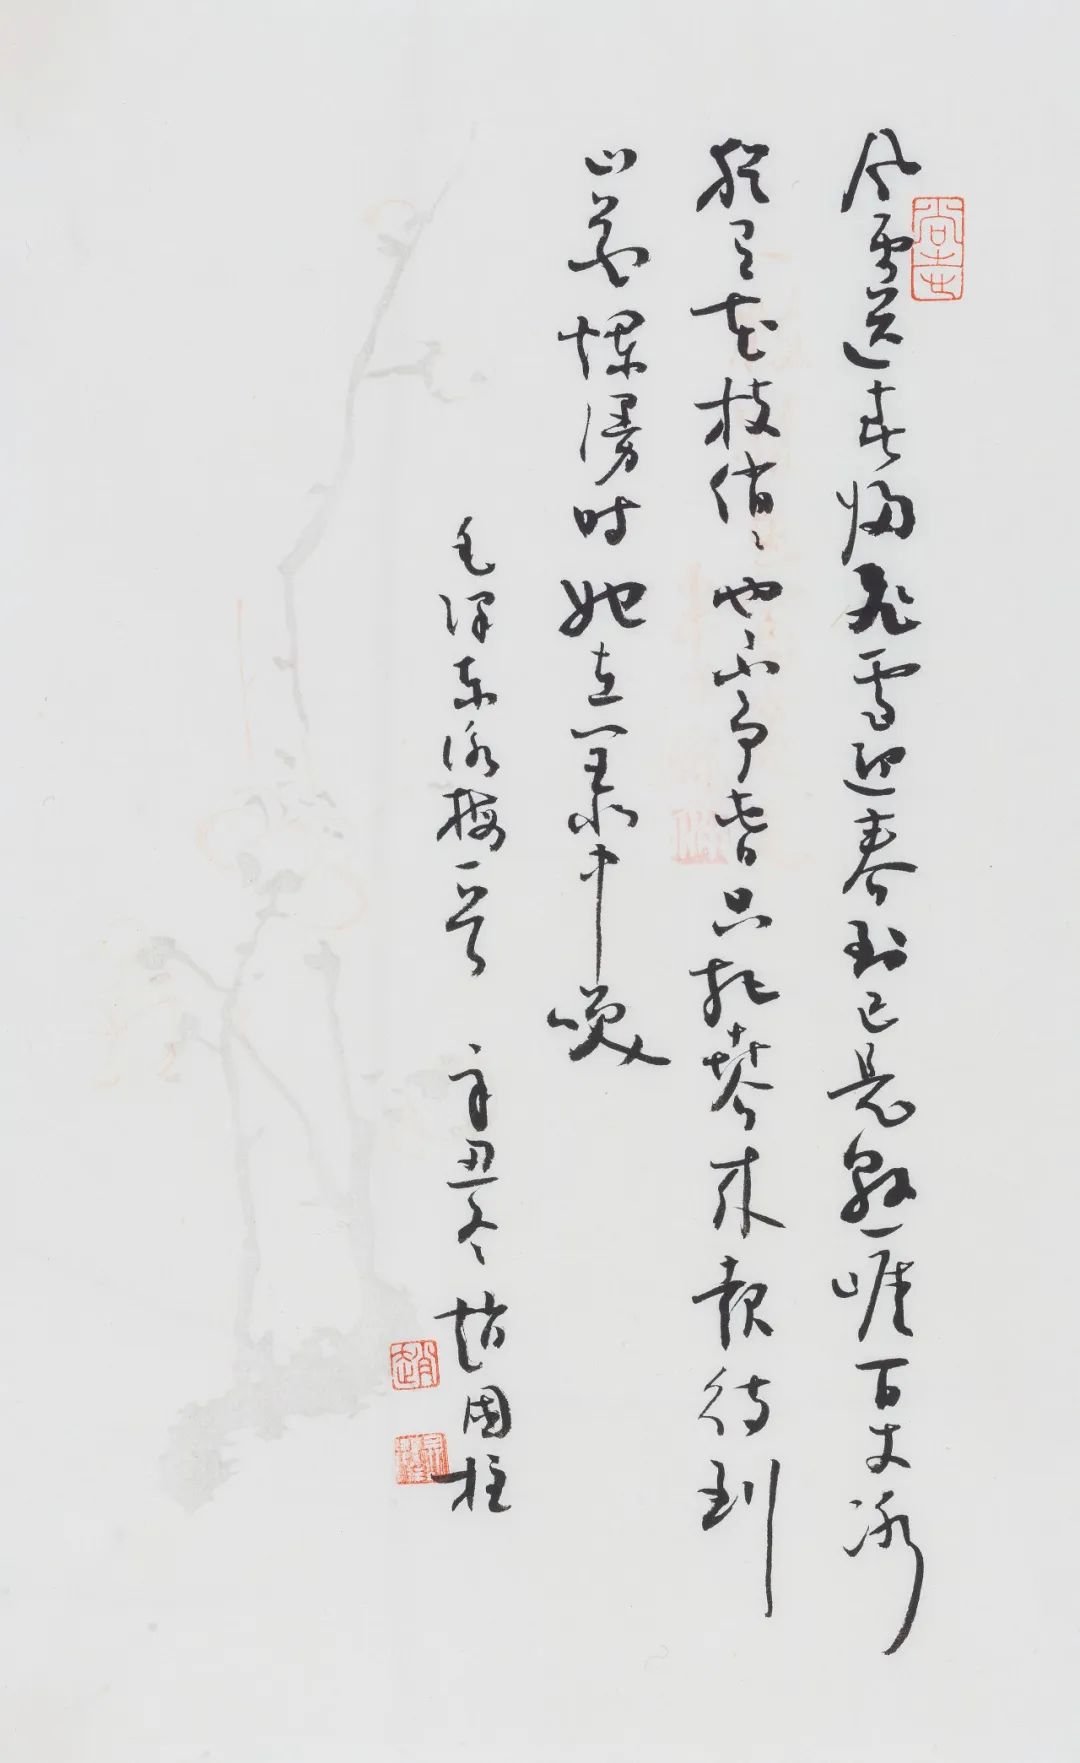 风雨送春归飞雪迎春到已是悬崖百丈冰
犹有花枝俏〻也不争春只把春来报待到
山花烂漫时她在丛中咲
毛泽东咏梅一首 辛丑冬 赵国柱
趙